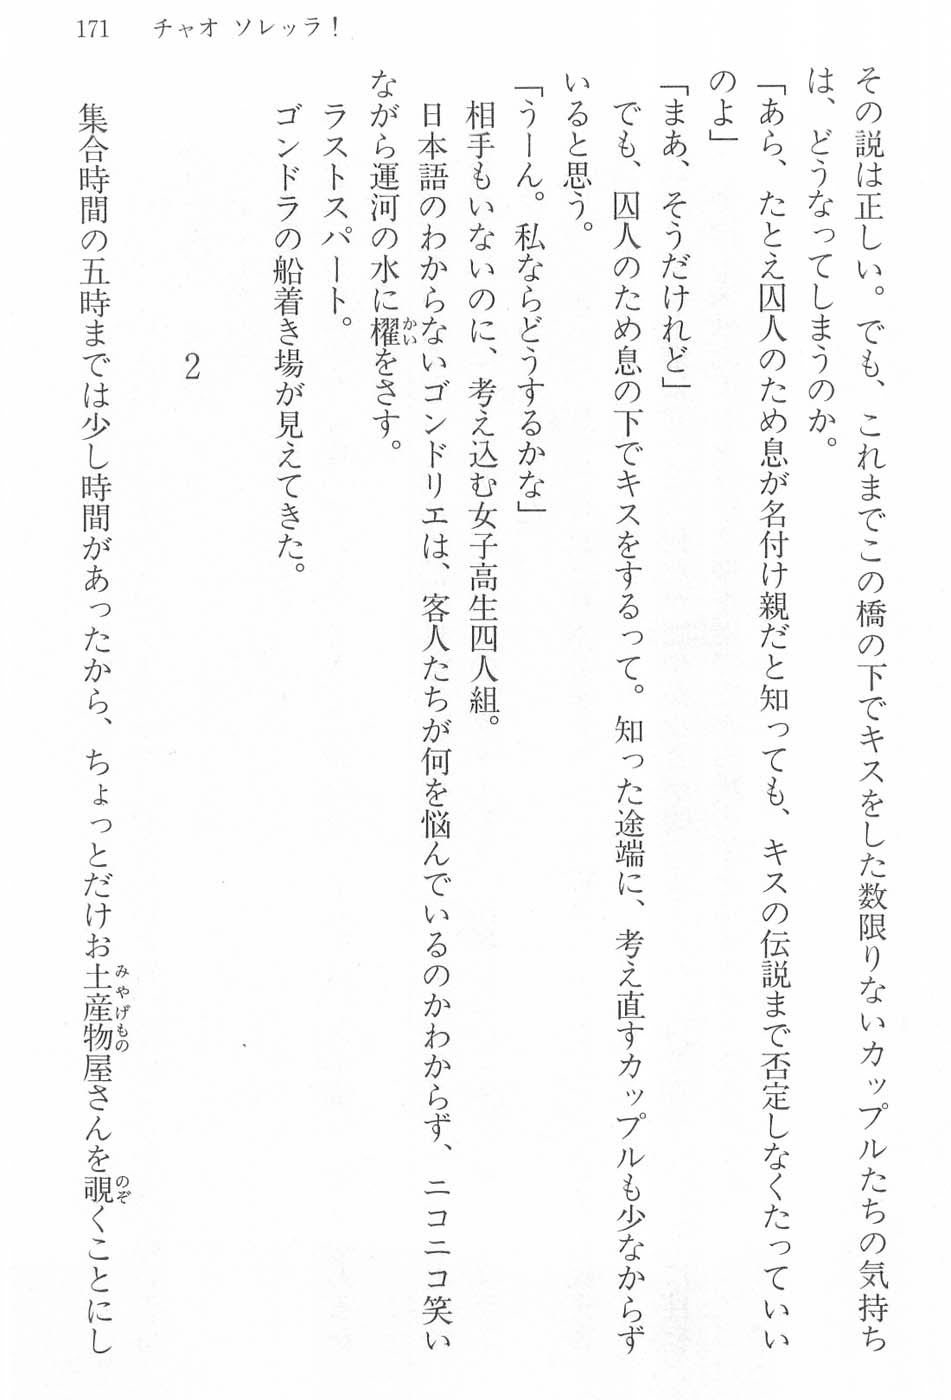 171　チャオ ソレッラ！
その説は正しい。でも、これまでこの橋の下でキスをした数限りないカップルたちの気持ち
は、どうなってしまうのか。
「あら、たとえ囚人のため息が名付け親だと知っても、キスの伝説まで否定しなくたっていい
のよ」
「まあ、そうだけれど」
でも、囚人のため息の下でキスをするって。知った途端に、考え直すカップルも少なからず
いると思う。
「うーん。私ならどうするかな」
相手もいないのに、考え込む女子高生四人組。
日本語のわからないゴンドリエは、客人たちが何を悩んでいるのかわからず、ニコニコ笑い
ながら運河の水に櫂かいをさす。
ラストスパート。
ゴンドラの船着き場が見えてきた。
2
集合時間の五時までは少し時間があったから、ちょっとだけお土産物みやげもの屋さんを覗のぞくことにし